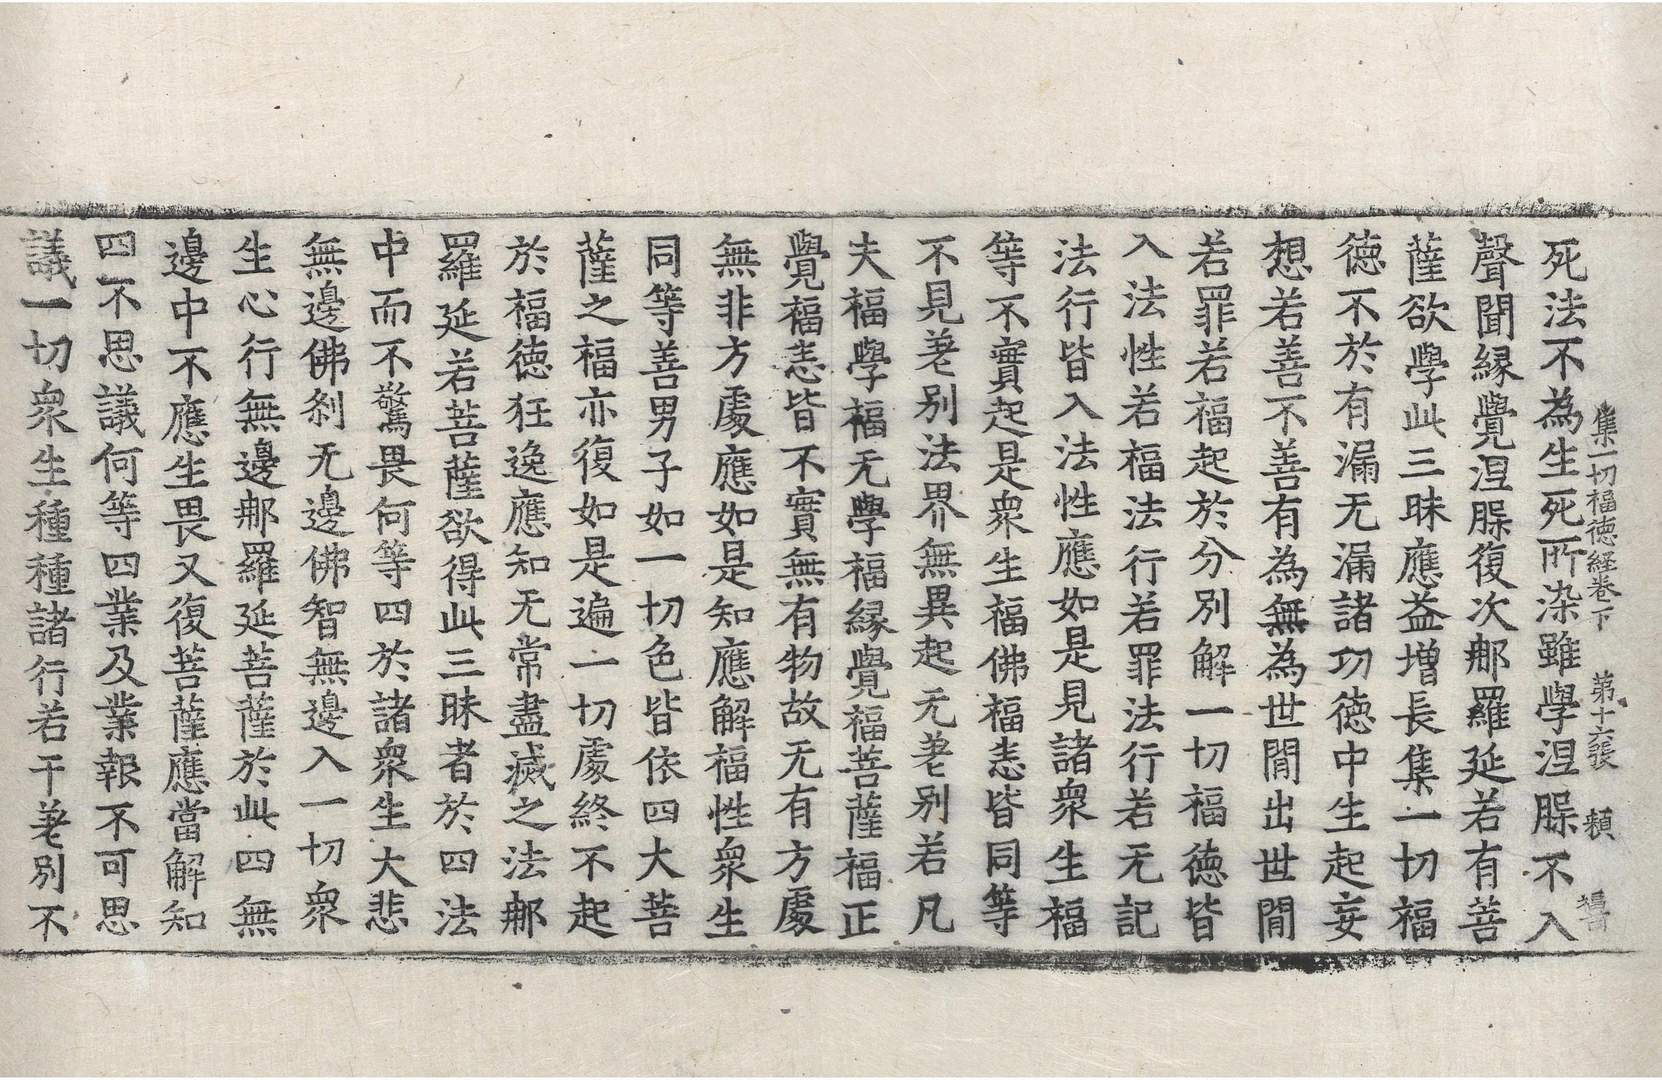 集一切福徳経卷下 第十六張 頼
死法不為生死所染雖學涅槃不入
聲聞縁覺涅槃復次那羅延若有菩
薩欲學此三昧應益增長集一切福
徳不於有漏无漏諸功徳中生起妄
想若善不善有為無為世閒出世閒
若罪若福起於分別解一切福徳皆
入法性若福法行若罪法行若无記
法行皆入法性應如是見諸衆生福
等不實起是衆生福佛福悉皆同等
不見差別法界無異起无差別若凡
夫福學福无學福縁覺福菩薩福正
覺福悉皆不實無有物故无有方處
無非方處應如是知應解福性衆生
同等善男子如一切色皆依四大菩
薩之福亦復如是遍一切處終不起
於福徳狂逸應知无常盡滅之法那
羅延若菩薩欲得此三昧者於四法
中而不驚畏何等四於諸衆生大悲
無邊佛刹无邊佛智無邊入一切衆
生心行無邊那羅延菩薩於此四無
邊中不應生畏又復菩薩應當解知
四不思議何等四業及業報不可思
議一切衆生種種諸行若干差別不